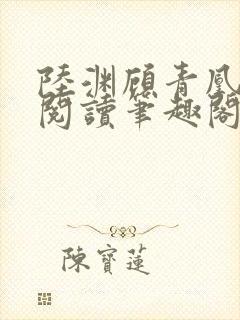 陸淵顧青鳳
閱讀筆趣閣
陳寶蓮